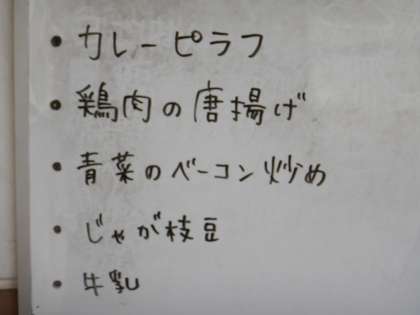 • カレーピラフ
• 鶏肉の唐揚げ
• 青菜のベーコン炒め
• じゃが枝豆
• 牛乳